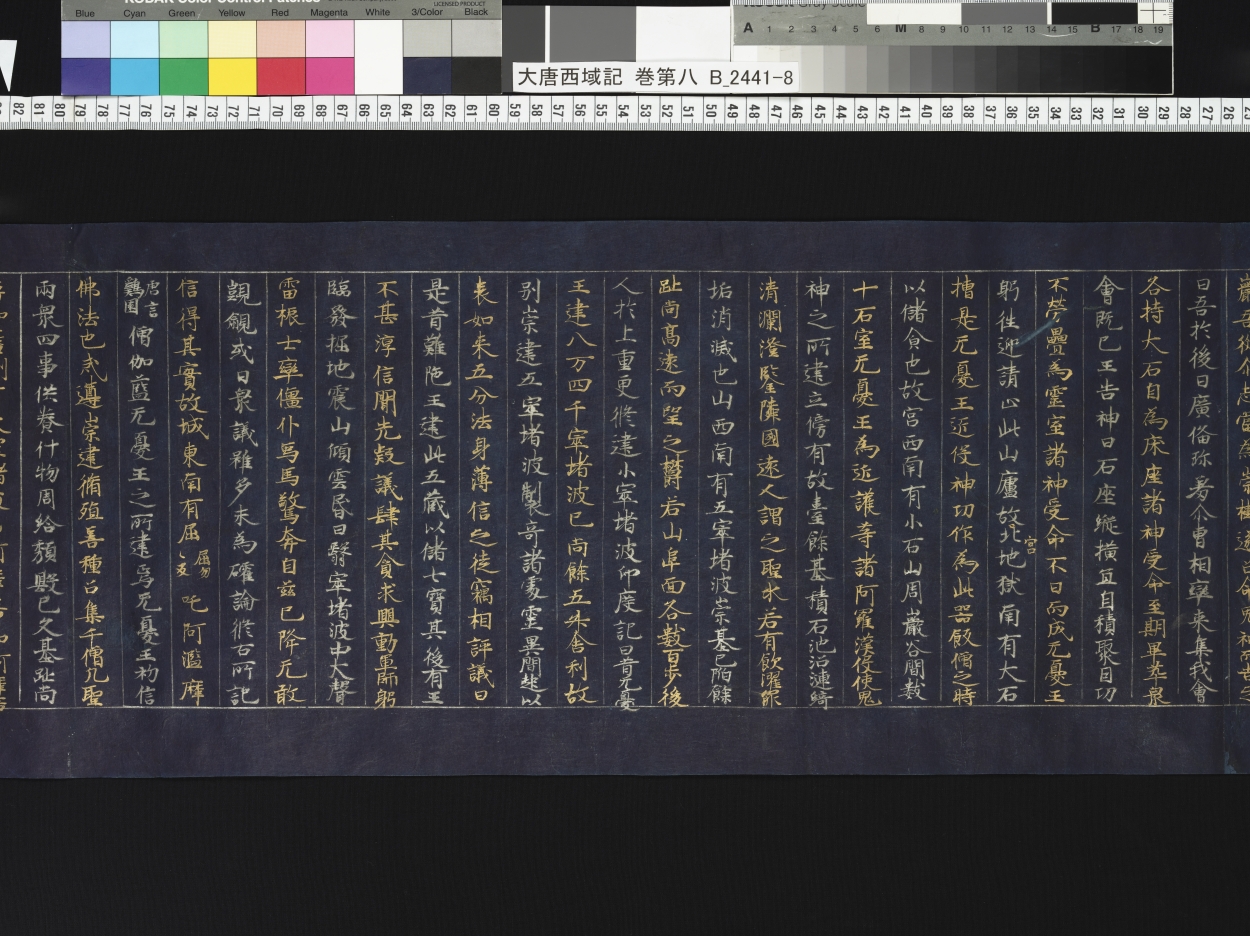 KODAK Color Control Patches
LICENSED PRODUCT
Blue Cyan Green Yellow Red Magenta White 3/Color Black
A 1 2 3 4 5 6 M 8 9 10 11 12 13 14 15 B 17 18 19
大唐西域記 巻第八 B_2441-8
82 81 80 79 78 77 76 75 74 73 72 71 70 69 68 67 66 65 64 63 62 61 60 59 58 57 56 55 54 53 52 51 50 49 48 47 46 45 44 43 42 41 40 39 38 37 36 35 34 33 32 31 30 29 28 27 26
曰吾於後日廣俻珎羞今曹相率来集我會
各持大石自為床座諸神受命至期畢萃衆
會既已王告神曰石座縱横宜自積聚因功
不勞疊為靈室諸神受命不日而成无憂王
躬往迎請止此山廬故北地獄南有大石
宮
槽是无憂王近役神功作為此器飯僧之時
以儲食也故宮西南有小石山周巖谷間数
十石室无憂王為近護等諸阿羅漢役使鬼
神之所建立傍有故臺餘基積石池沼漣漪
清瀾澄鑒隣國遠人謂之聖水若有飲濯罪
垢消滅也山西南有五窣堵波崇基已陷餘
趾尚高遠而望之欝若山阜面各数百步後
人於上重更修建小窣堵波印度記曰昔无憂
王建八万四千窣堵波已尚餘五舛舍利故
別崇建五窣堵波製奇諸處靈異間起以
表如来五分法身薄信之徒竊相評議曰
是昔難陁王建此五藏以儲七寶其後有王
不甚淳信聞先疑議肆其貪求興動軍師躬
臨發掘地震山傾雲昏日翳窣堵波中大聲
雷振士卒僵仆馬驚奔自兹已降无敢
覬覦或曰衆議雖多未為確論修古所記
信得其實故城東南有屈
屈勿
反
吒阿濫摩
唐言
鷄園
僧伽藍无憂王之所建焉无憂王初信
佛法也式遵崇建脩殖善種召集千僧凡聖
兩衆四事供養什物周給頹毀已久基趾尚